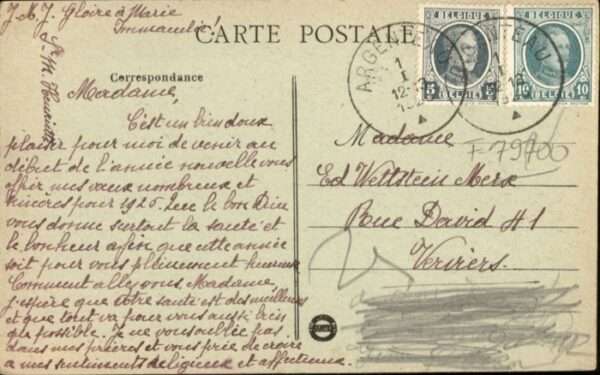 J. M. J. Gloire à Marie
Immaculée!
Sr. M. Henriette
CARTE POSTALE
Correspondance
Madame,
C'est un bien doux
plaisir pour moi de venir au
début de l'année nouvelle vous
offrir mes vœux nombreux et
sincères pour 1926. Que le bon Dieu
vous donne surtout la santé et
le bonheur afin que cette année
soit pour vous pleinement heureuse
Comment allez vous, Madame,
j'espère que votre santé est des meilleures
et que tout va pour vous aussi bien
que possible. Je ne vous oublie pas
dans mes prières et vous prie de croire
à mes sentiments religieux et affectueux.
BELGIQUE
BELGIË
BELGIQUE
10 BELGIË 10
ARGENTEAU
1
I
12
Madame
F 79700
Ed Wettstein Merx
Rue David 41
Verviers.